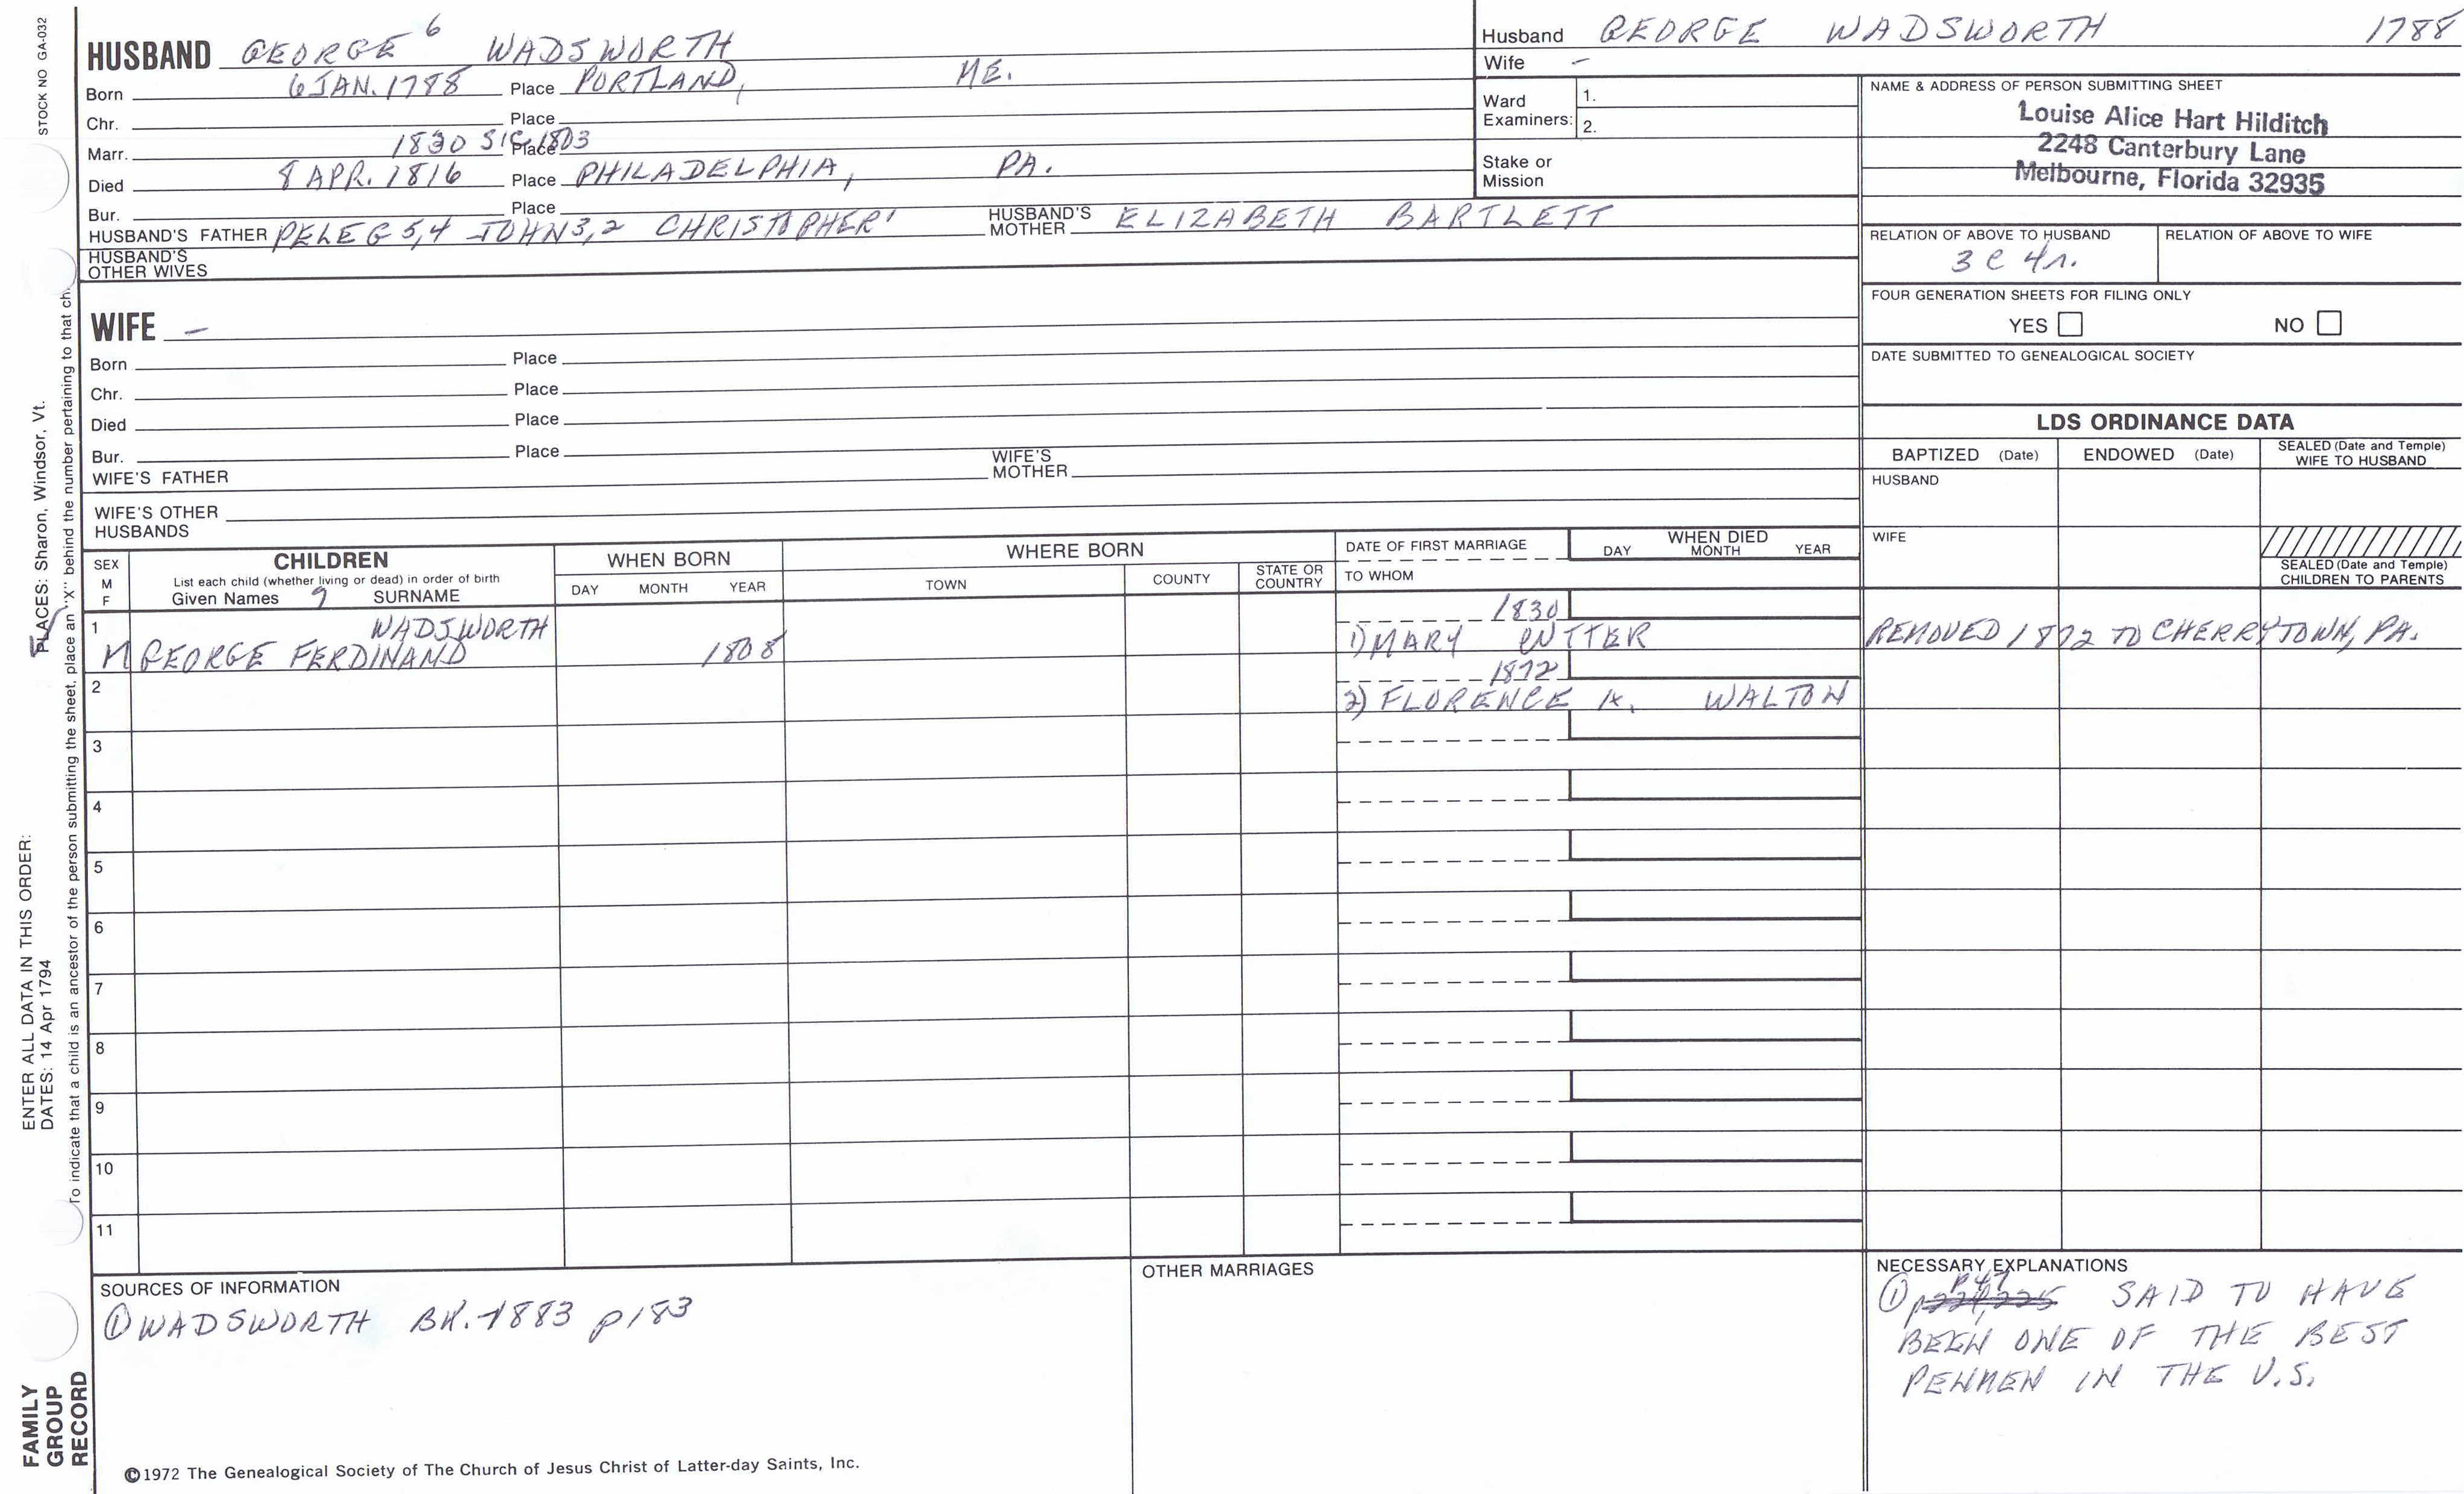 STOCK NO GA-032
HUSBAND GEORGE 6 WADSWORTH
Born 6 JAN. 1788 Place PORTLAND, ME.
Chr. Place
Marr. 1830 SIC 1803 Place
Died 8 APR. 1816 Place PHILADELPHIA, PA.
Bur. Place
HUSBAND'S FATHER PELEG 5,4 JOHN 3,2 CHRISTOPHER 1 HUSBAND'S MOTHER ELIZABETH BARTLETT
HUSBAND'S OTHER WIVES
Husband GEORGE WADSWORTH 1788
Wife -
Ward Examiners: 1.
2.
Stake or Mission
NAME & ADDRESS OF PERSON SUBMITTING SHEET
Louise Alice Hart Hilditch
2248 Canterbury Lane
Melbourne, Florida 32935
RELATION OF ABOVE TO HUSBAND RELATION OF ABOVE TO WIFE
3 C 4 r.
FOUR GENERATION SHEETS FOR FILING ONLY
YES NO
DATE SUBMITTED TO GENEALOGICAL SOCIETY
WIFE -
Born Place
Chr. Place
Died Place
Bur. Place
WIFE'S FATHER WIFE'S MOTHER
WIFE'S OTHER HUSBANDS
LDS ORDINANCE DATA
BAPTIZED (Date) ENDOWED (Date) SEALED (Date and Temple) WIFE TO HUSBAND
HUSBAND
WIFE
SEALED (Date and Temple) CHILDREN TO PARENTS
SEX M F
CHILDREN
List each child (whether living or dead) in order of birth
Given Names 7 SURNAME
WHEN BORN
DAY MONTH YEAR
WHERE BORN
TOWN COUNTY STATE OR COUNTRY
DATE OF FIRST MARRIAGE
TO WHOM
WHEN DIED
DAY MONTH YEAR
1 WADSWORTH 1830
M GEORGE FERDINAND 1808 1) MARY REMOVED 1872 TO CHERRYTOWN, PA.
2 1872
2) FLORENCE WALTON
3
4
5
6
7
8
9
10
11
SOURCES OF INFORMATION
① WADSWORTH BK. 1883 p183
OTHER MARRIAGES
NECESSARY EXPLANATIONS
① P 47 SAID TO HAVE
BEEN ONE OF THE BEST
PENMEN IN THE U.S.
©1972 The Genealogical Society of The Church of Jesus Christ of Latter-day Saints, Inc.
FAMILY
GROUP
RECORD
ENTER ALL DATA IN THIS ORDER:
DATES: 14 Apr 1794
PLACES: Sharon, Windsor, Vt.
To indicate that a child is an ancestor of the person submitting the sheet, place an "X" behind the number pertaining to that ch